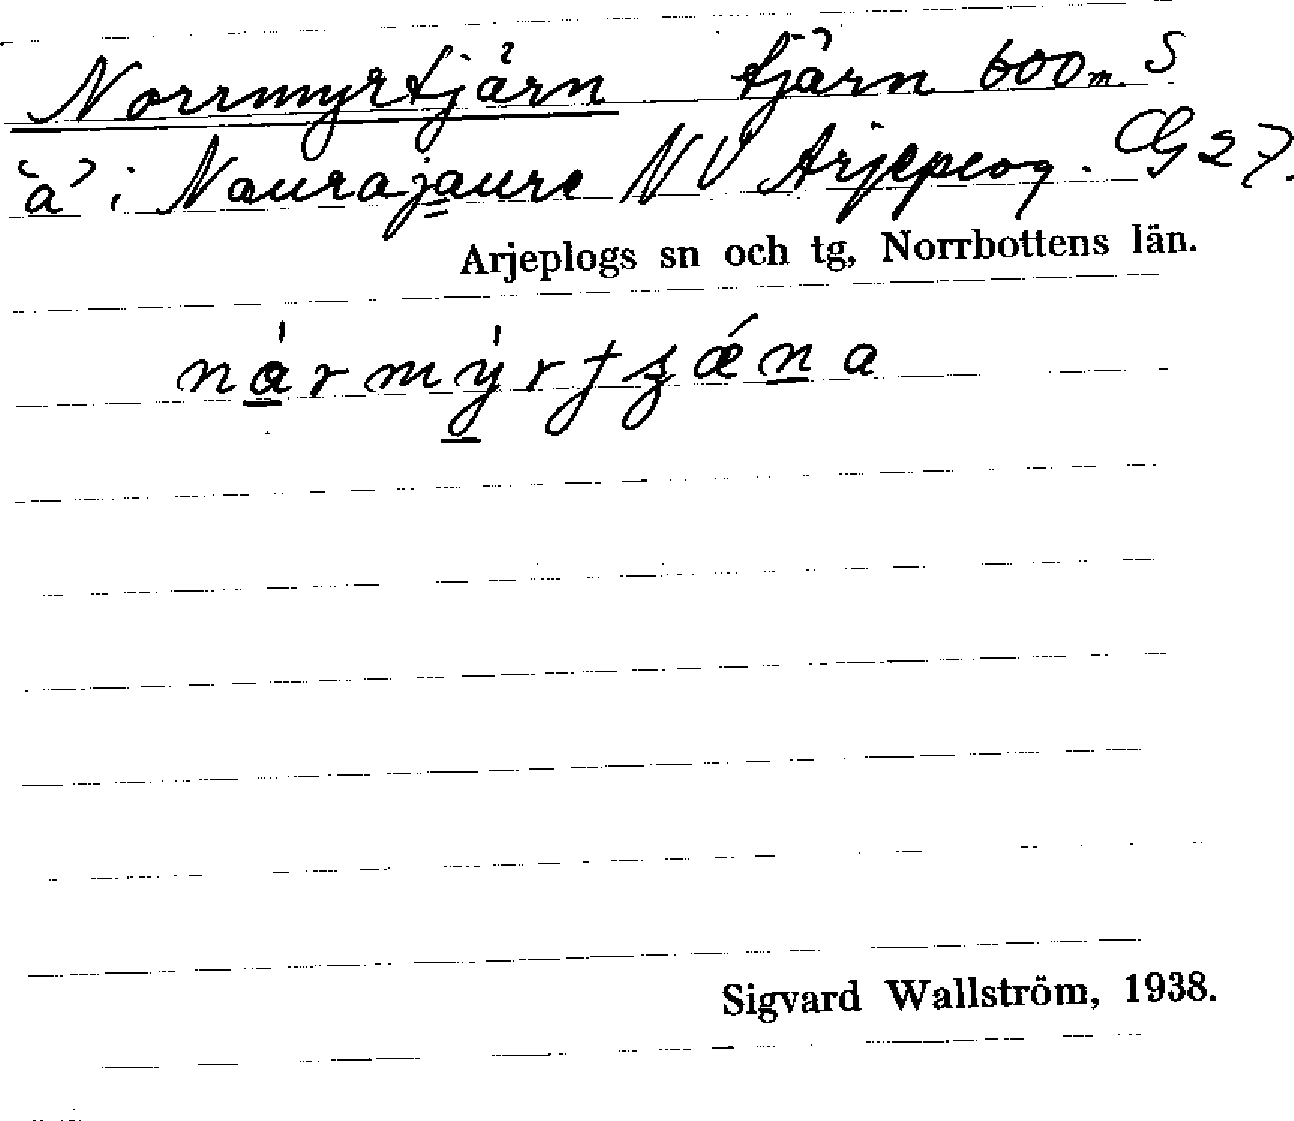 Norrmyrtjärn tjärn 600 m S
"a" i Naurajaure NV Arjeplog. G 27.
Arjeplogs sn och tg, Norrbottens län.
Sigvard Wallström, 1938.